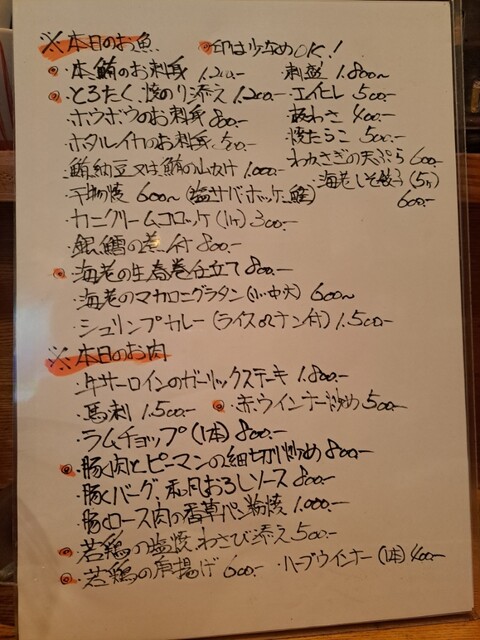 ※本日のお魚 ◎印は少なめOK!
◎・本鮪のお刺身 1.200-
・刺盛 1.800〜
◎・とろたく、焼のり添え 1.200-
・エイヒレ 500-
・ホウボウのお刺身 800-
・板わさ 400-
・ホタルイカのお刺身
・焼たらこ 500-
・鮪納豆又は鮪の山かけ 1.000-
・わかさぎの天ぷら 600-
・干物焼 600〜(塩サバ・ホッケ・鮭)
・海老しそ餃子(5ケ) 600-
・カニクリームコロッケ(1ケ)300-
・銀鱈の煮付 800-
◎・海老の生春巻仕立て 800-
・海老のマカロニグラタン(小・中・大) 600〜
・シュリンプカレー(ライスorナン付)1.500-
※本日のお肉
・牛サーロインのガーリックステーキ 1.800-
・馬刺 1.500-
◎・赤ウインナー炒め 500-
・ラムチョップ(1本)800-
◎・豚肉とピーマンの細切り炒め 800-
・豚バーグ、和風おろしソース 800-
・豚ロース肉の香草パン粉焼 1.000-
◎・若鶏の塩焼わさび添え 500-
◎・若鶏の唐揚げ 600-
・ハーブウインナー(1本)400-